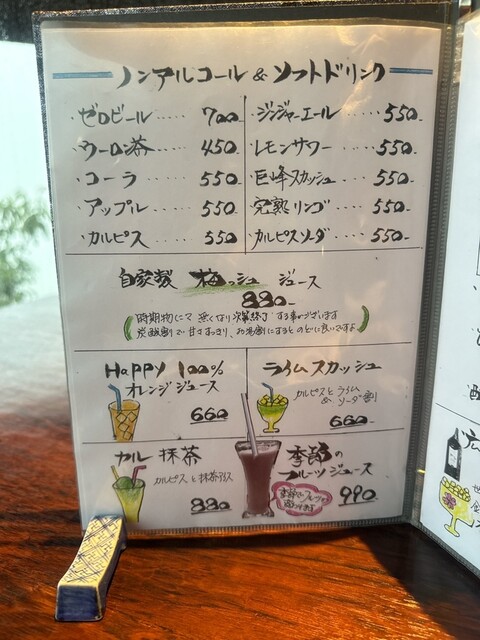 ノンアルコール & ソフトドリンク
・ゼロビール ..... 700
・ウーロン茶 ..... 450
・コーラ ..... 550
・アップル ..... 550
・カルピス ..... 550
・ジンジャーエール ... 550
・レモンサワー ... 550
・巨峰スカッシュ ... 550
・完熟リンゴ ... 550
・カルピスソーダ ... 550
自家製 梅ッシュ ジュース
880
時期物にて 無くなり次第終了する事がございます
炭酸割で甘さすっきり、お湯割にするとのどに良いですよ
Happy 100%
オレンジジュース
660
ライムスカッシュ
カルピスとライム
& ソーダ割
660
カル 抹茶
カルピスと抹茶アイス
880
季節の
フルーツジュース
990